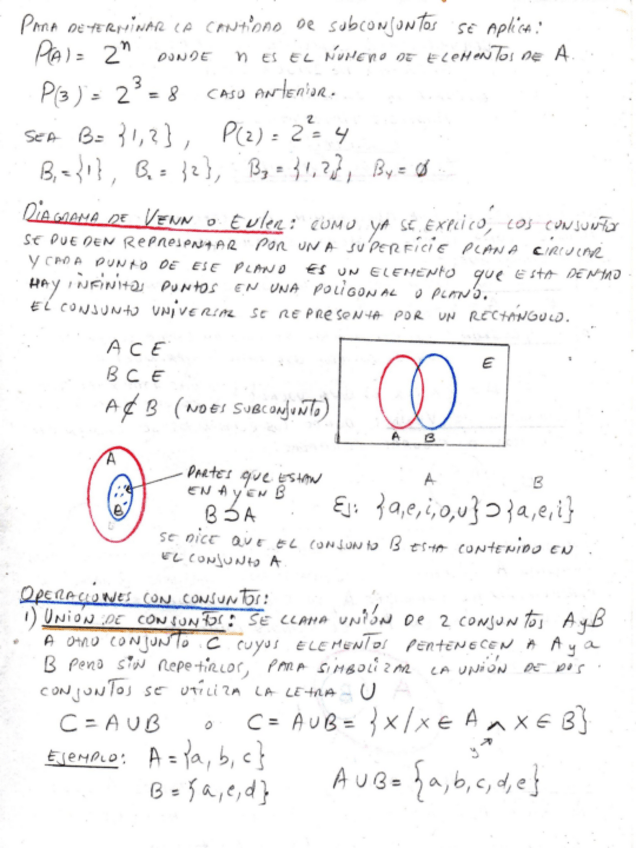 PARA DETERMINAR LA CANTIDAD DE SUBCONJUNTOS SE APLICA:
P(A) = 2ⁿ DONDE n ES EL NÚMERO DE ELEMENTOS DE A
P(3) = 2³ = 8 CASO ANTERIOR.
SEA B = {1,2}, P(2) = 2² = 4
B₁ = {1}, B₂ = {2}, B₃ = {1,2}, B₄ = ∅
DIAGRAMA DE VENN O EULER: COMO YA SE EXPLICÓ, LOS CONJUNTOS
SE PUEDEN REPRESENTAR POR UNA SUPERFICIE PLANA CIRCULAR
Y CADA PUNTO DE ESE PLANO ES UN ELEMENTO QUE ESTA DENTRO
HAY INFINITOS PUNTOS EN UNA POLIGONAL O PLANO.
EL CONJUNTO UNIVERSAL SE REPRESENTA POR UN RECTÁNGULO.
A ⊂ E
B ⊂ E
A ⊄ B (NO ES SUBCONJUNTO)
E
A B
A
B
PARTES QUE ESTAN
EN A Y EN B
B ⊃ A
A B
EJ: {a,e,i,o,u} ⊃ {a,e,i}
SE DICE QUE EL CONJUNTO B ESTA CONTENIDO EN
EL CONJUNTO A
OPERACIONES CON CONJUNTOS:
1) UNIÓN DE CONJUNTOS: SE LLAMA UNIÓN DE 2 CONJUNTOS A y B
A OTRO CONJUNTO C CUYOS ELEMENTOS PERTENECEN A A y a
B PERO SIN REPETIRLOS, PARA SIMBOLIZAR LA UNIÓN DE DOS
CONJUNTOS SE UTILIZA LA LETRA U
C = A∪B o C = A∪B = {X/X ∈ A ∧ X ∈ B}
y
EJEMPLO: A = {a, b, c}
B = {a, e, d}
A∪B = {a, b, c, d, e}